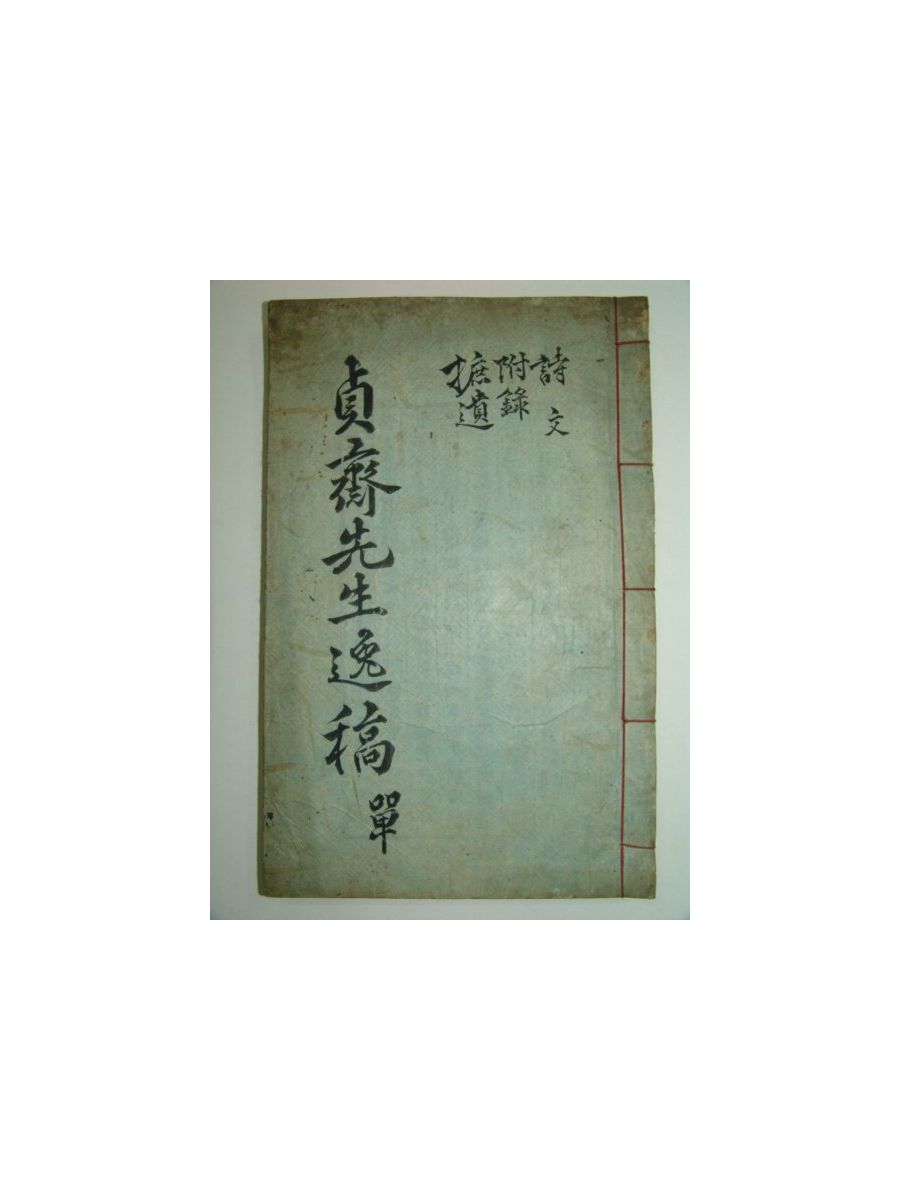 詩文
附錄
摭遺
貞齋先生逸稿 單